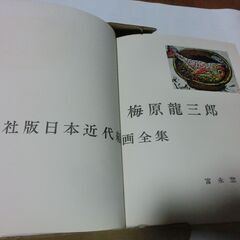 梅原龍三郎
社版日本近代絵画全集
富永惣